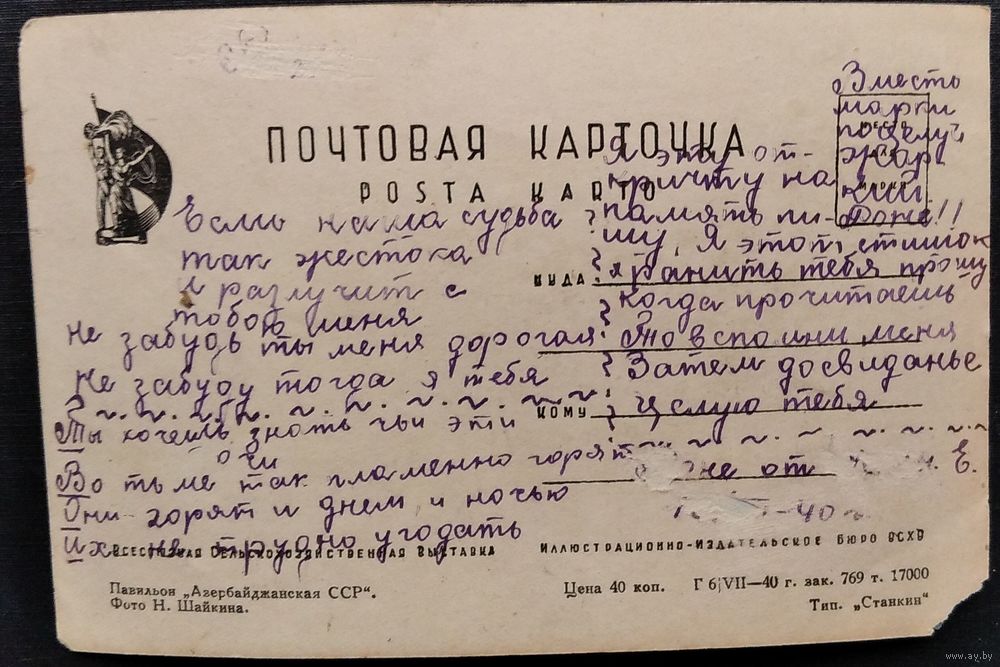 ПОЧТОВАЯ КАРТОЧКА
POSTA KARTO
Вместо
марки
поцелуй
жар
кий
МЕСТО
Если наша судьба
так жестока
и разлучит с
тобою меня
Не забудь ты меня дорогая
Не забуду тогда я тебя
Ты хочешь знать чьи эти
очи
Во тьме так пламенно горят
Они горят и днем и ночью
Их не трудно угодать
Я эту от-
кричту на
память пи-
шу, Я этот стишок
хранить тебя прошу
когда прочитаешь
То вспомни меня
Затем досвиданье
целую тебя
КУДА
КОМУ
от
Е.
-40 г
ВСЕСОЮЗНАЯ СЕЛЬСКОХОЗЯЙСТВЕННАЯ ВЫСТАВКА
ИЛЛЮСТРАЦИОННО-ИЗДАТЕЛЬСКОЕ БЮРО ВСХВ
Павильон „Азербайджанская ССР“.
Фото Н. Шайкина.
Цена 40 коп. Г 6/VII—40 г. зак. 769 т. 17000
Тип. „Станкин“
www.ay.by